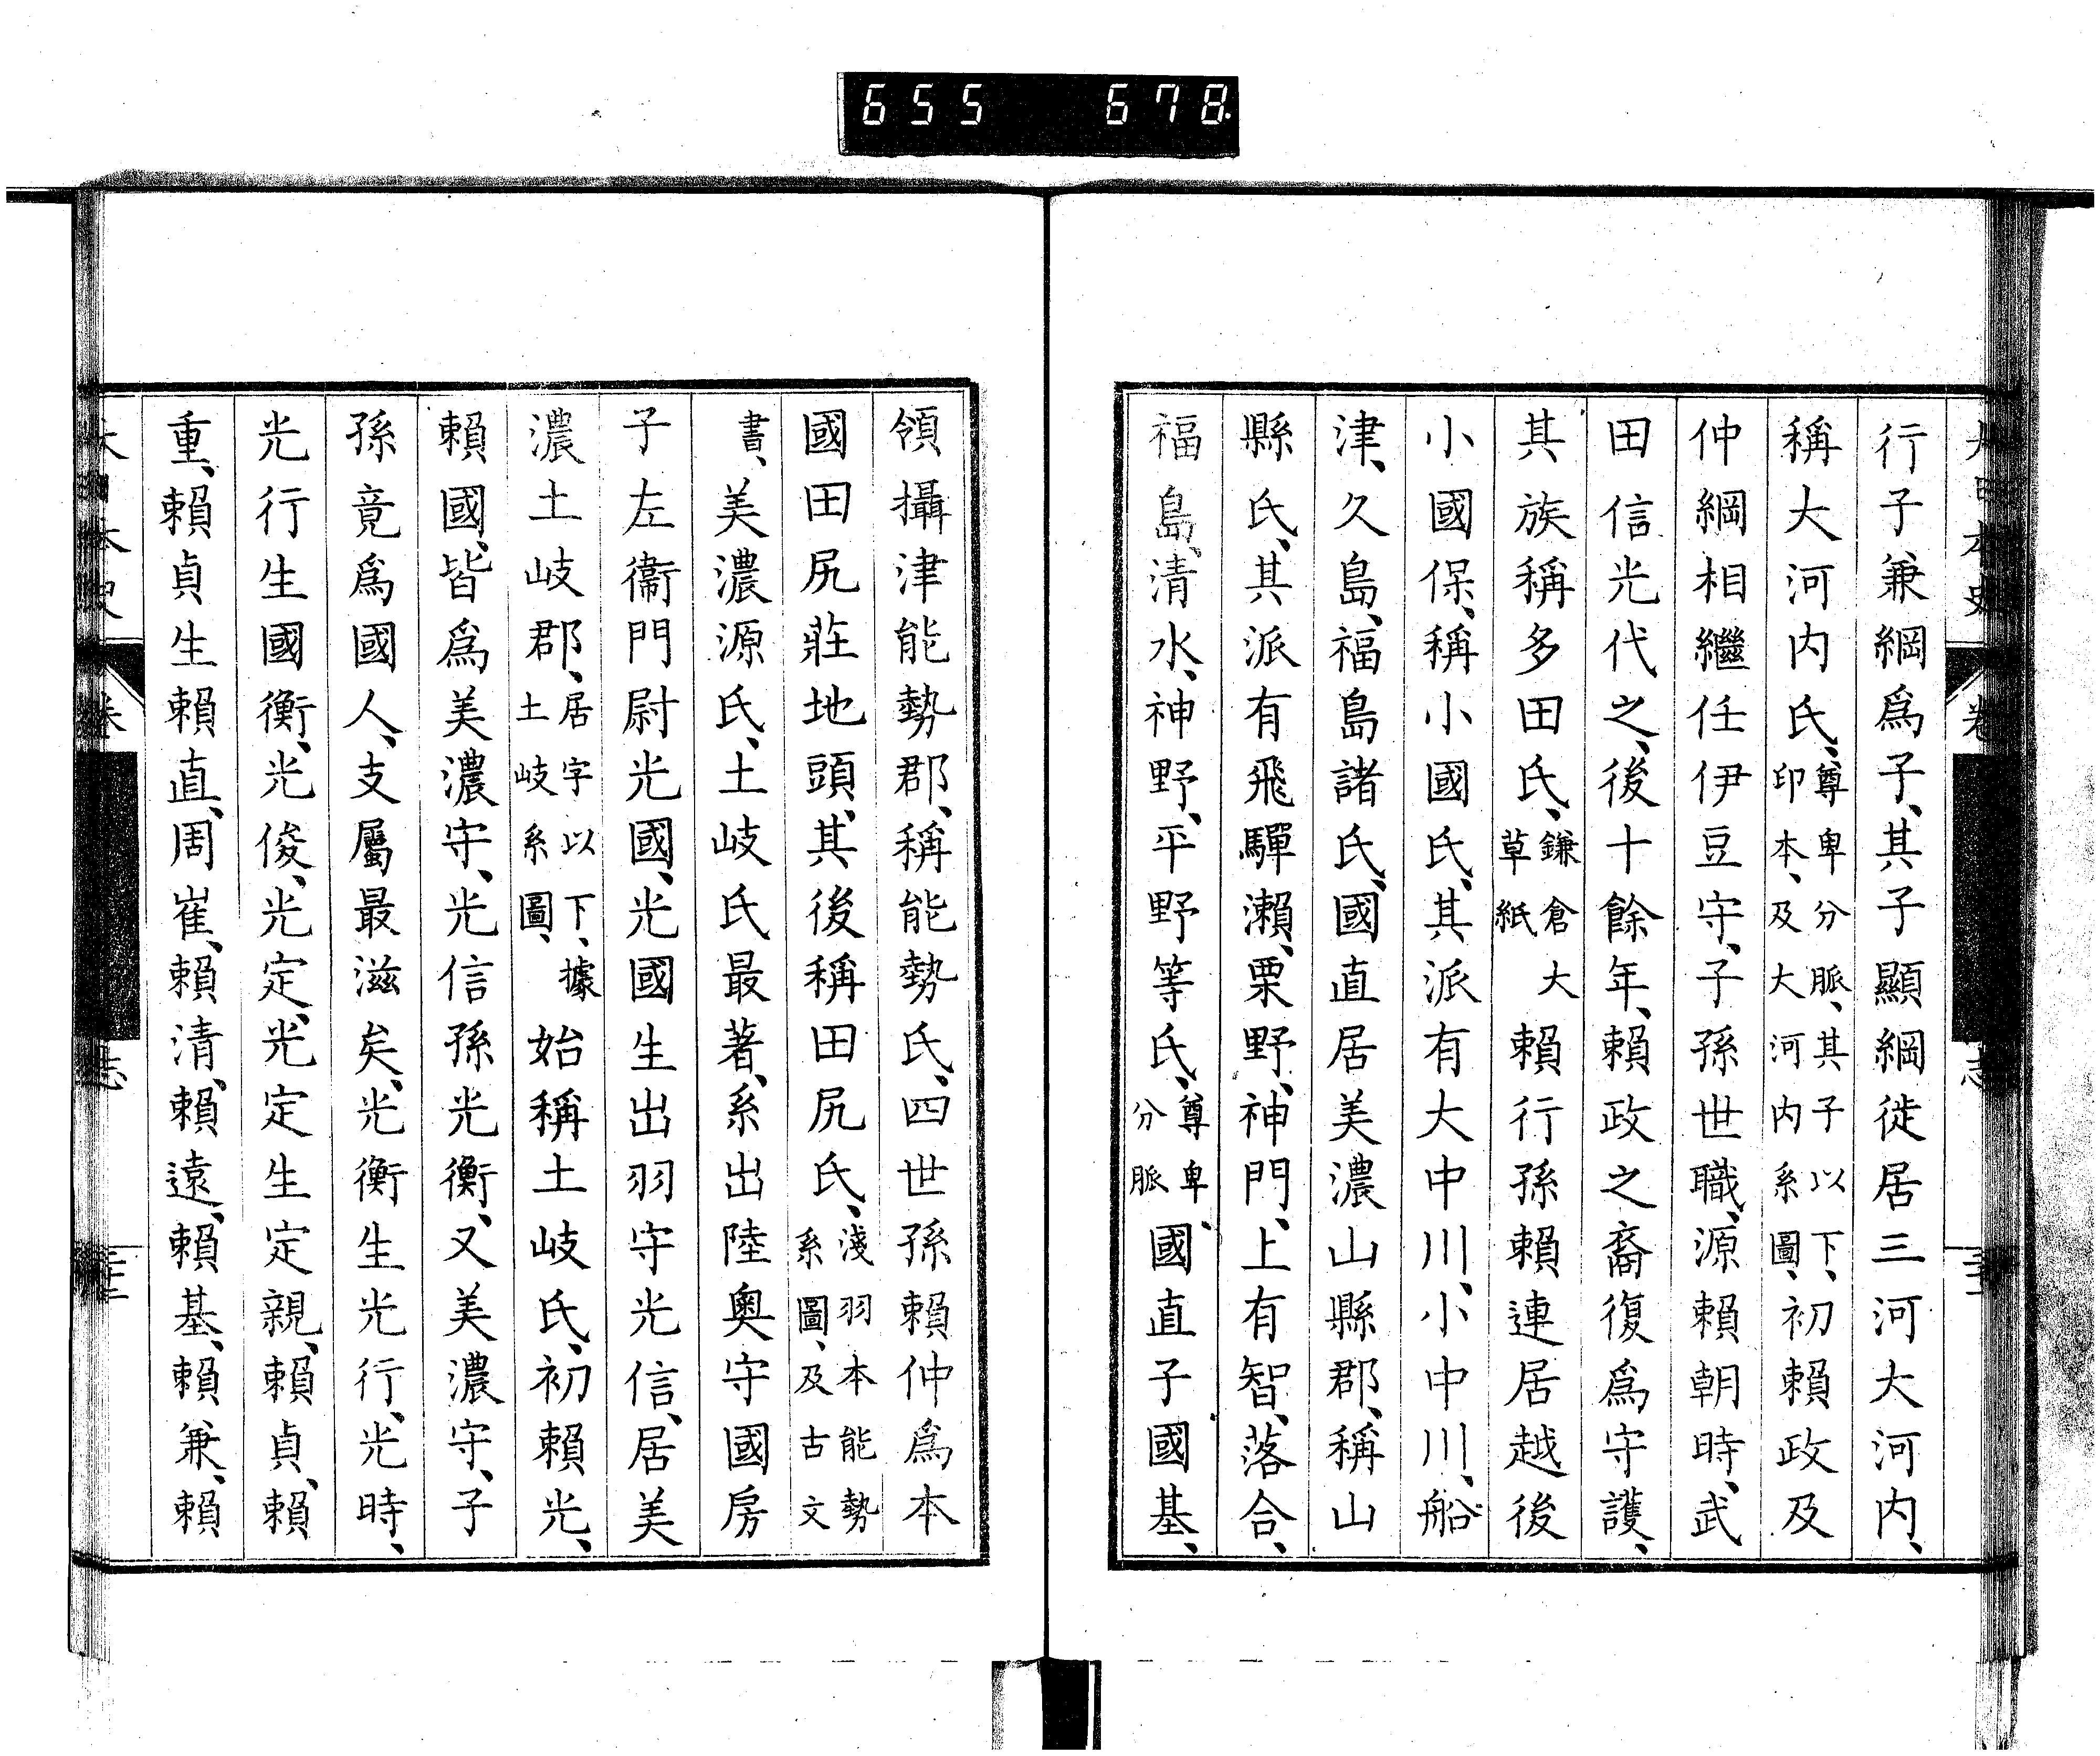 655 678
行子兼綱爲子、其子顯綱徙居三河大河内、
稱大河内氏、尊卑分脈、其子以下、印本、及大河内系圖、初賴政及
仲綱相繼任伊豆守、子孫世職、源賴朝時、武
田信光代之、後十餘年、賴政之裔復爲守護、
其族稱多田氏、鎌倉大草紙賴行孫賴連居越後
小國保、稱小國氏、其派有大中川、小中川、船
津、久島、福島諸氏、國直居美濃山縣郡、稱山
縣氏、其派有飛驒瀨、栗野、神門、上有智、落合、
福島、清水、神野、平野等氏、尊卑分脈、國直子國基、
領攝津能勢郡、稱能勢氏、四世孫賴仲爲本
國田尻莊地頭、其後稱田尻氏、淺羽本能勢系圖、及古文
書、美濃源氏、土岐氏最著、系出陸奧守國房
子左衞門尉光國、光國生出羽守光信、居美
濃土岐郡、居字以下、據土岐系圖、始稱土岐氏、初賴光、
賴國、皆爲美濃守、光信孫光衡、又美濃守、子
孫竟爲國人、支屬最滋矣、光衡生光行、光時、
光行生國衡、光俊、光定、光定生定親、賴貞、賴
重、賴貞生賴直、周崔、賴清、賴遠、賴基、賴兼、賴